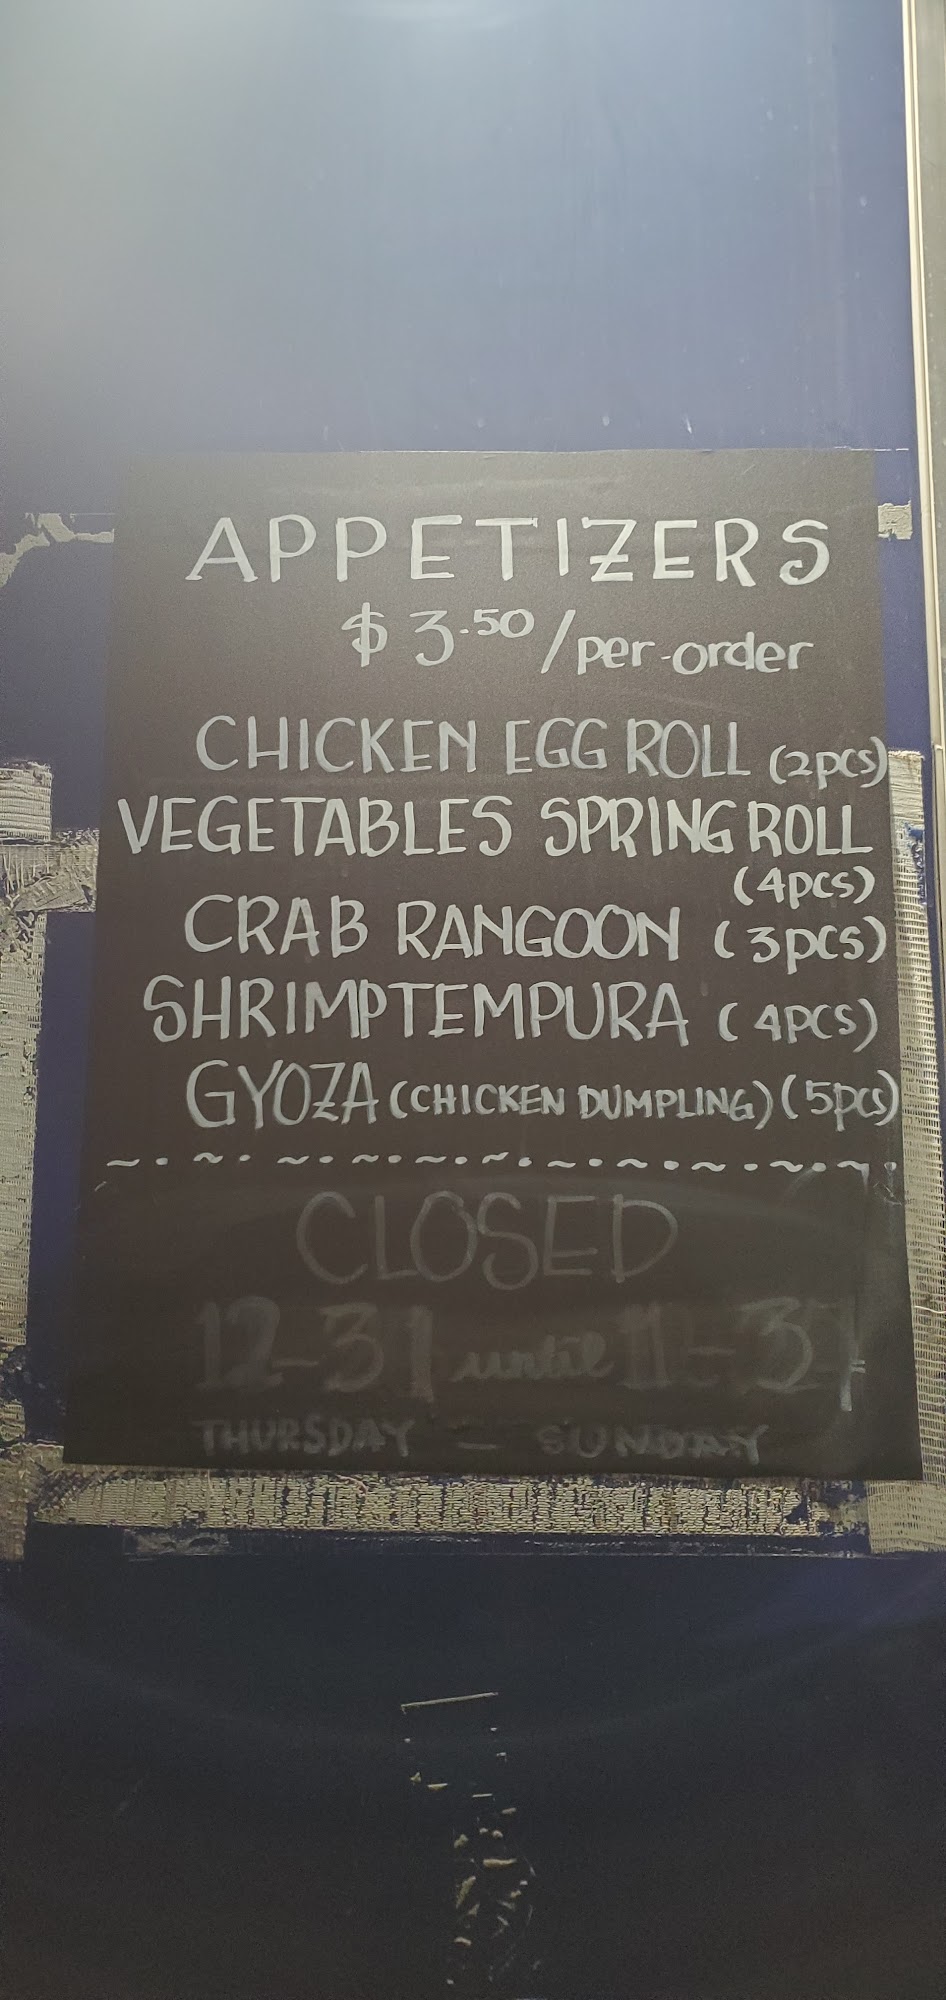 APPETIZERS
$ 3.50/per-order
CHICKEN EGG ROLL (2pcs)
VEGETABLES SPRING ROLL
(4pcs)
CRAB RANGOON (3pcs)
SHRIMP TEMPURA (4pcs)
GYOZA (CHICKEN DUMPLING) (5pcs)
CLOSED
12-31 until 11-3
THURSDAY - SUNDAY